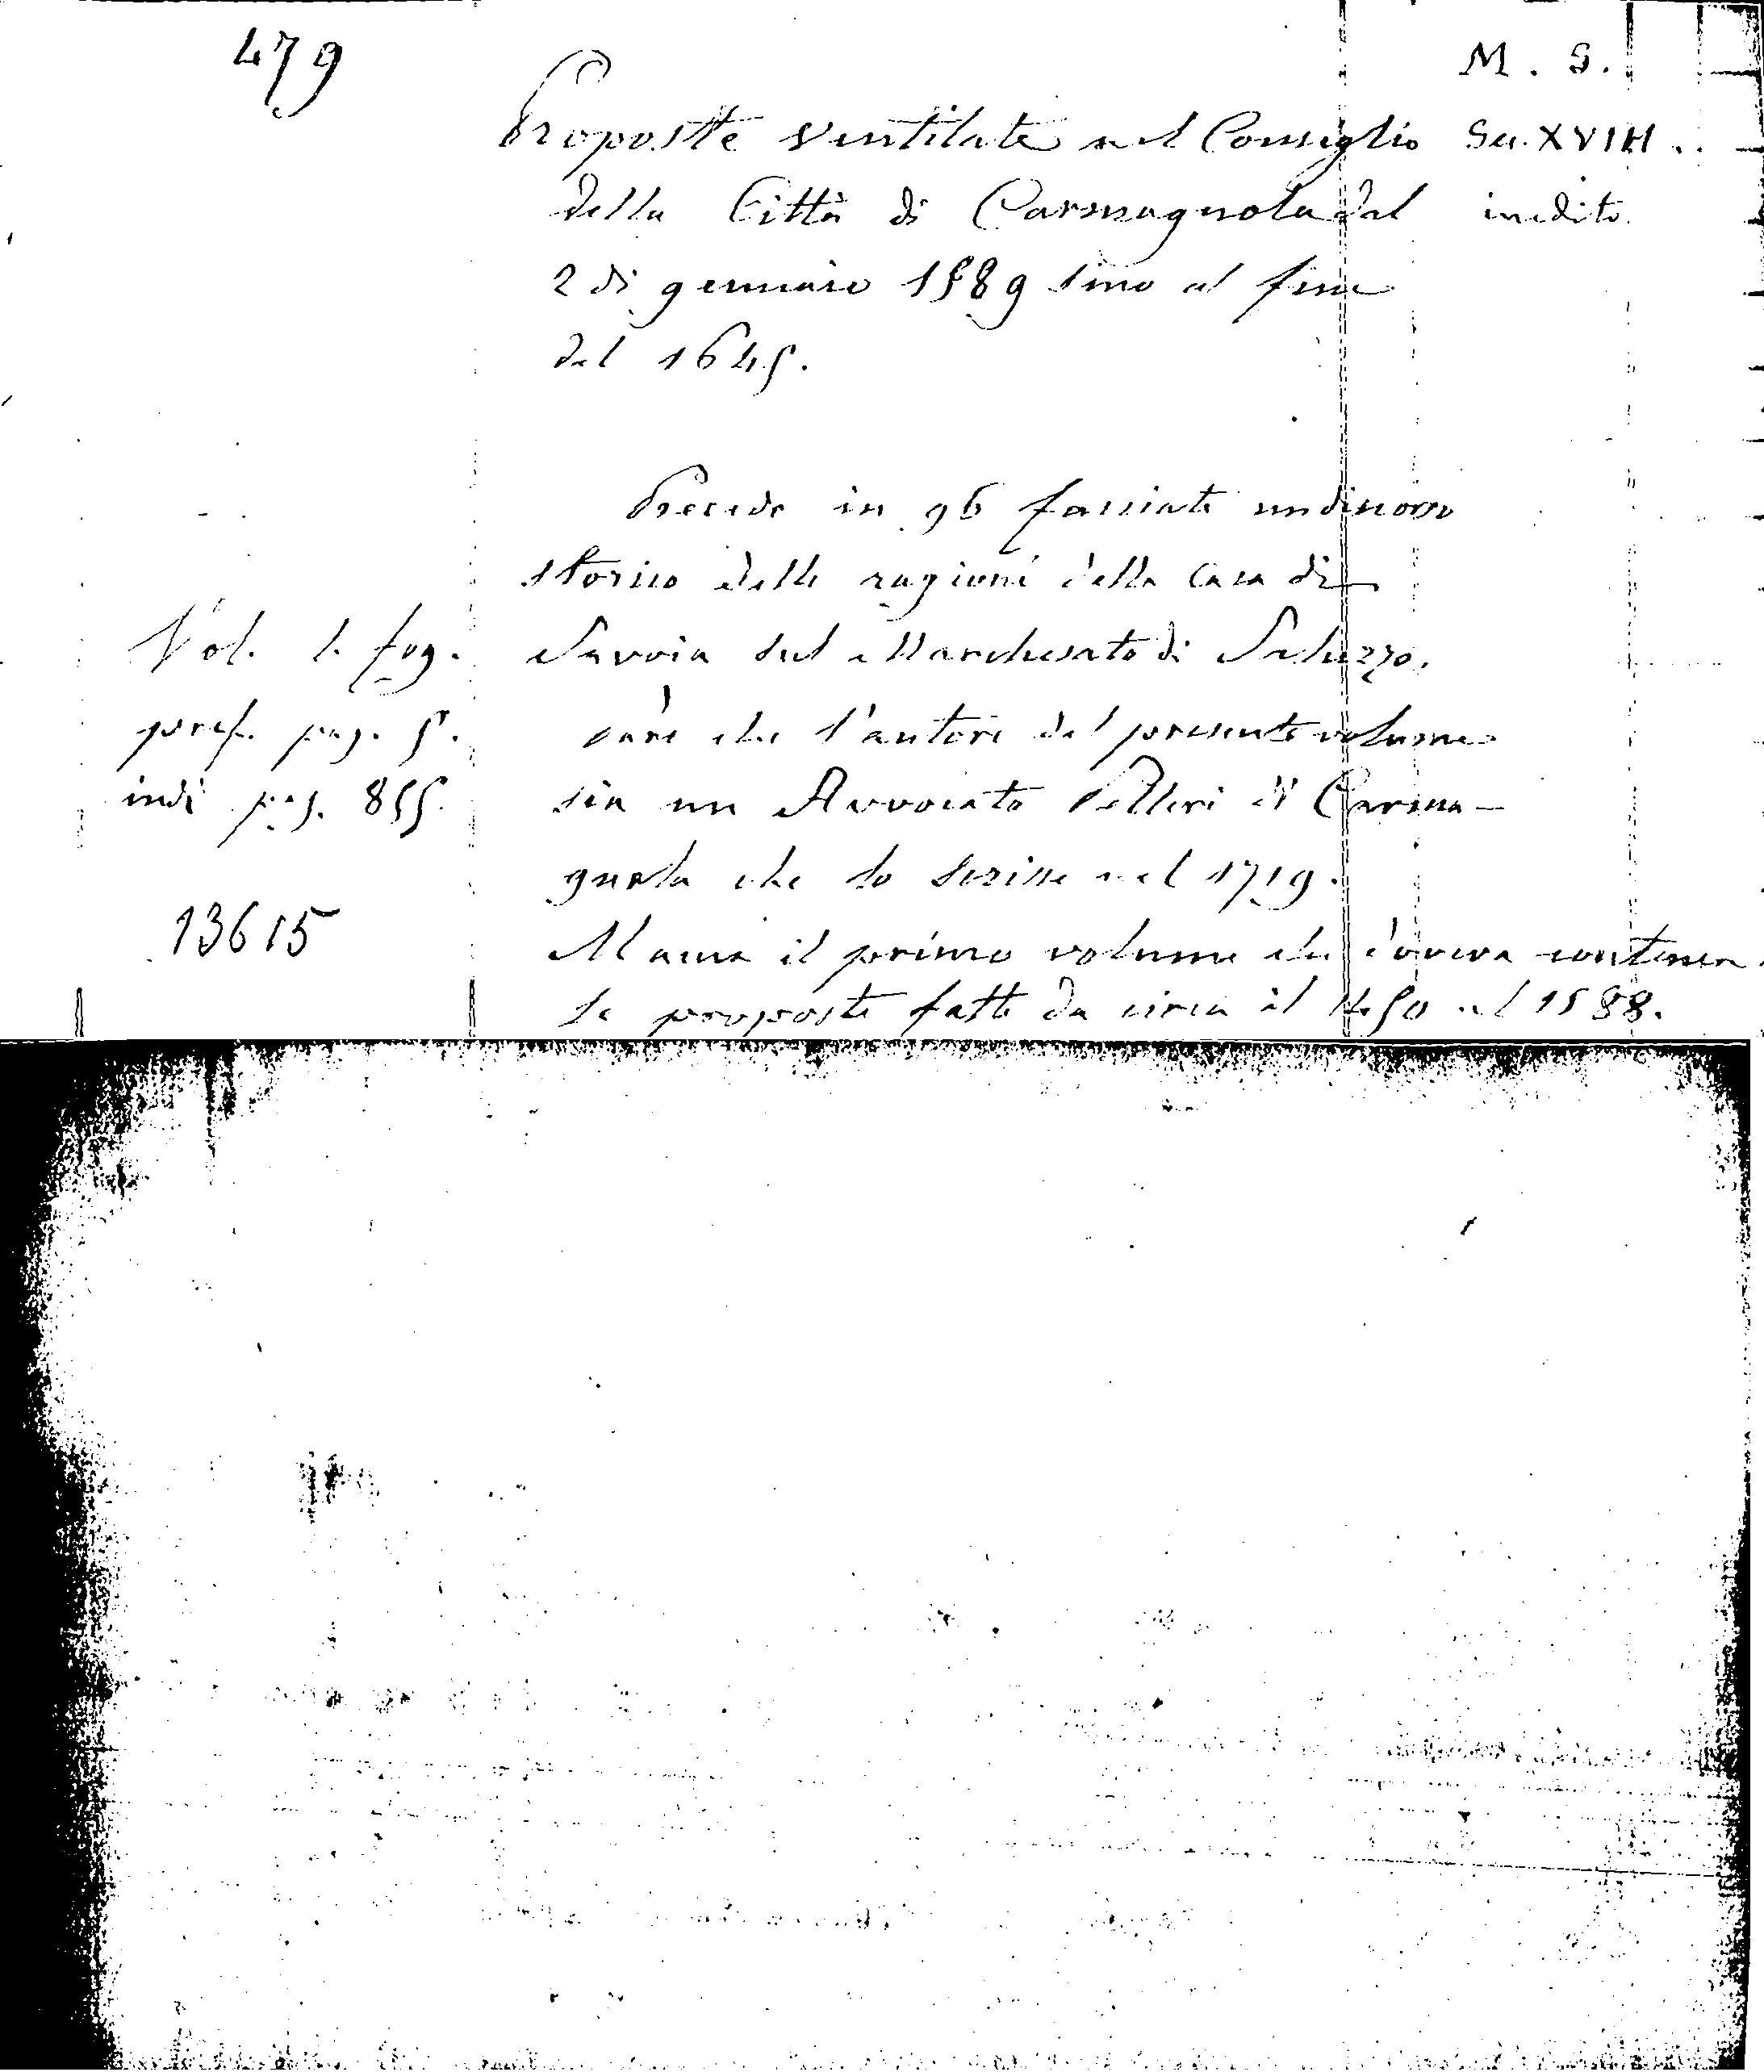 479
M. S.
Proposte ventilate nel Consiglio Sec. XVIII.
della Città di Carmagnola dal inedito
2 di gennaio 1589 sino al fine
del 1645.
Precede in 96 facciate un discorso
storico delle ragioni della Casa di
Savoia sul Marchesato di Saluzzo.
pare che l'autore del presente volume
sia un Avvocato di Carma-
gnola che lo scrisse nel 1719.
Manca il primo volume che doveva contenere
le proposte fatte da circa il 1450 al 1588.
Vol. 1. fog.
pref. pag. 5.
indi pag. 855.
13615